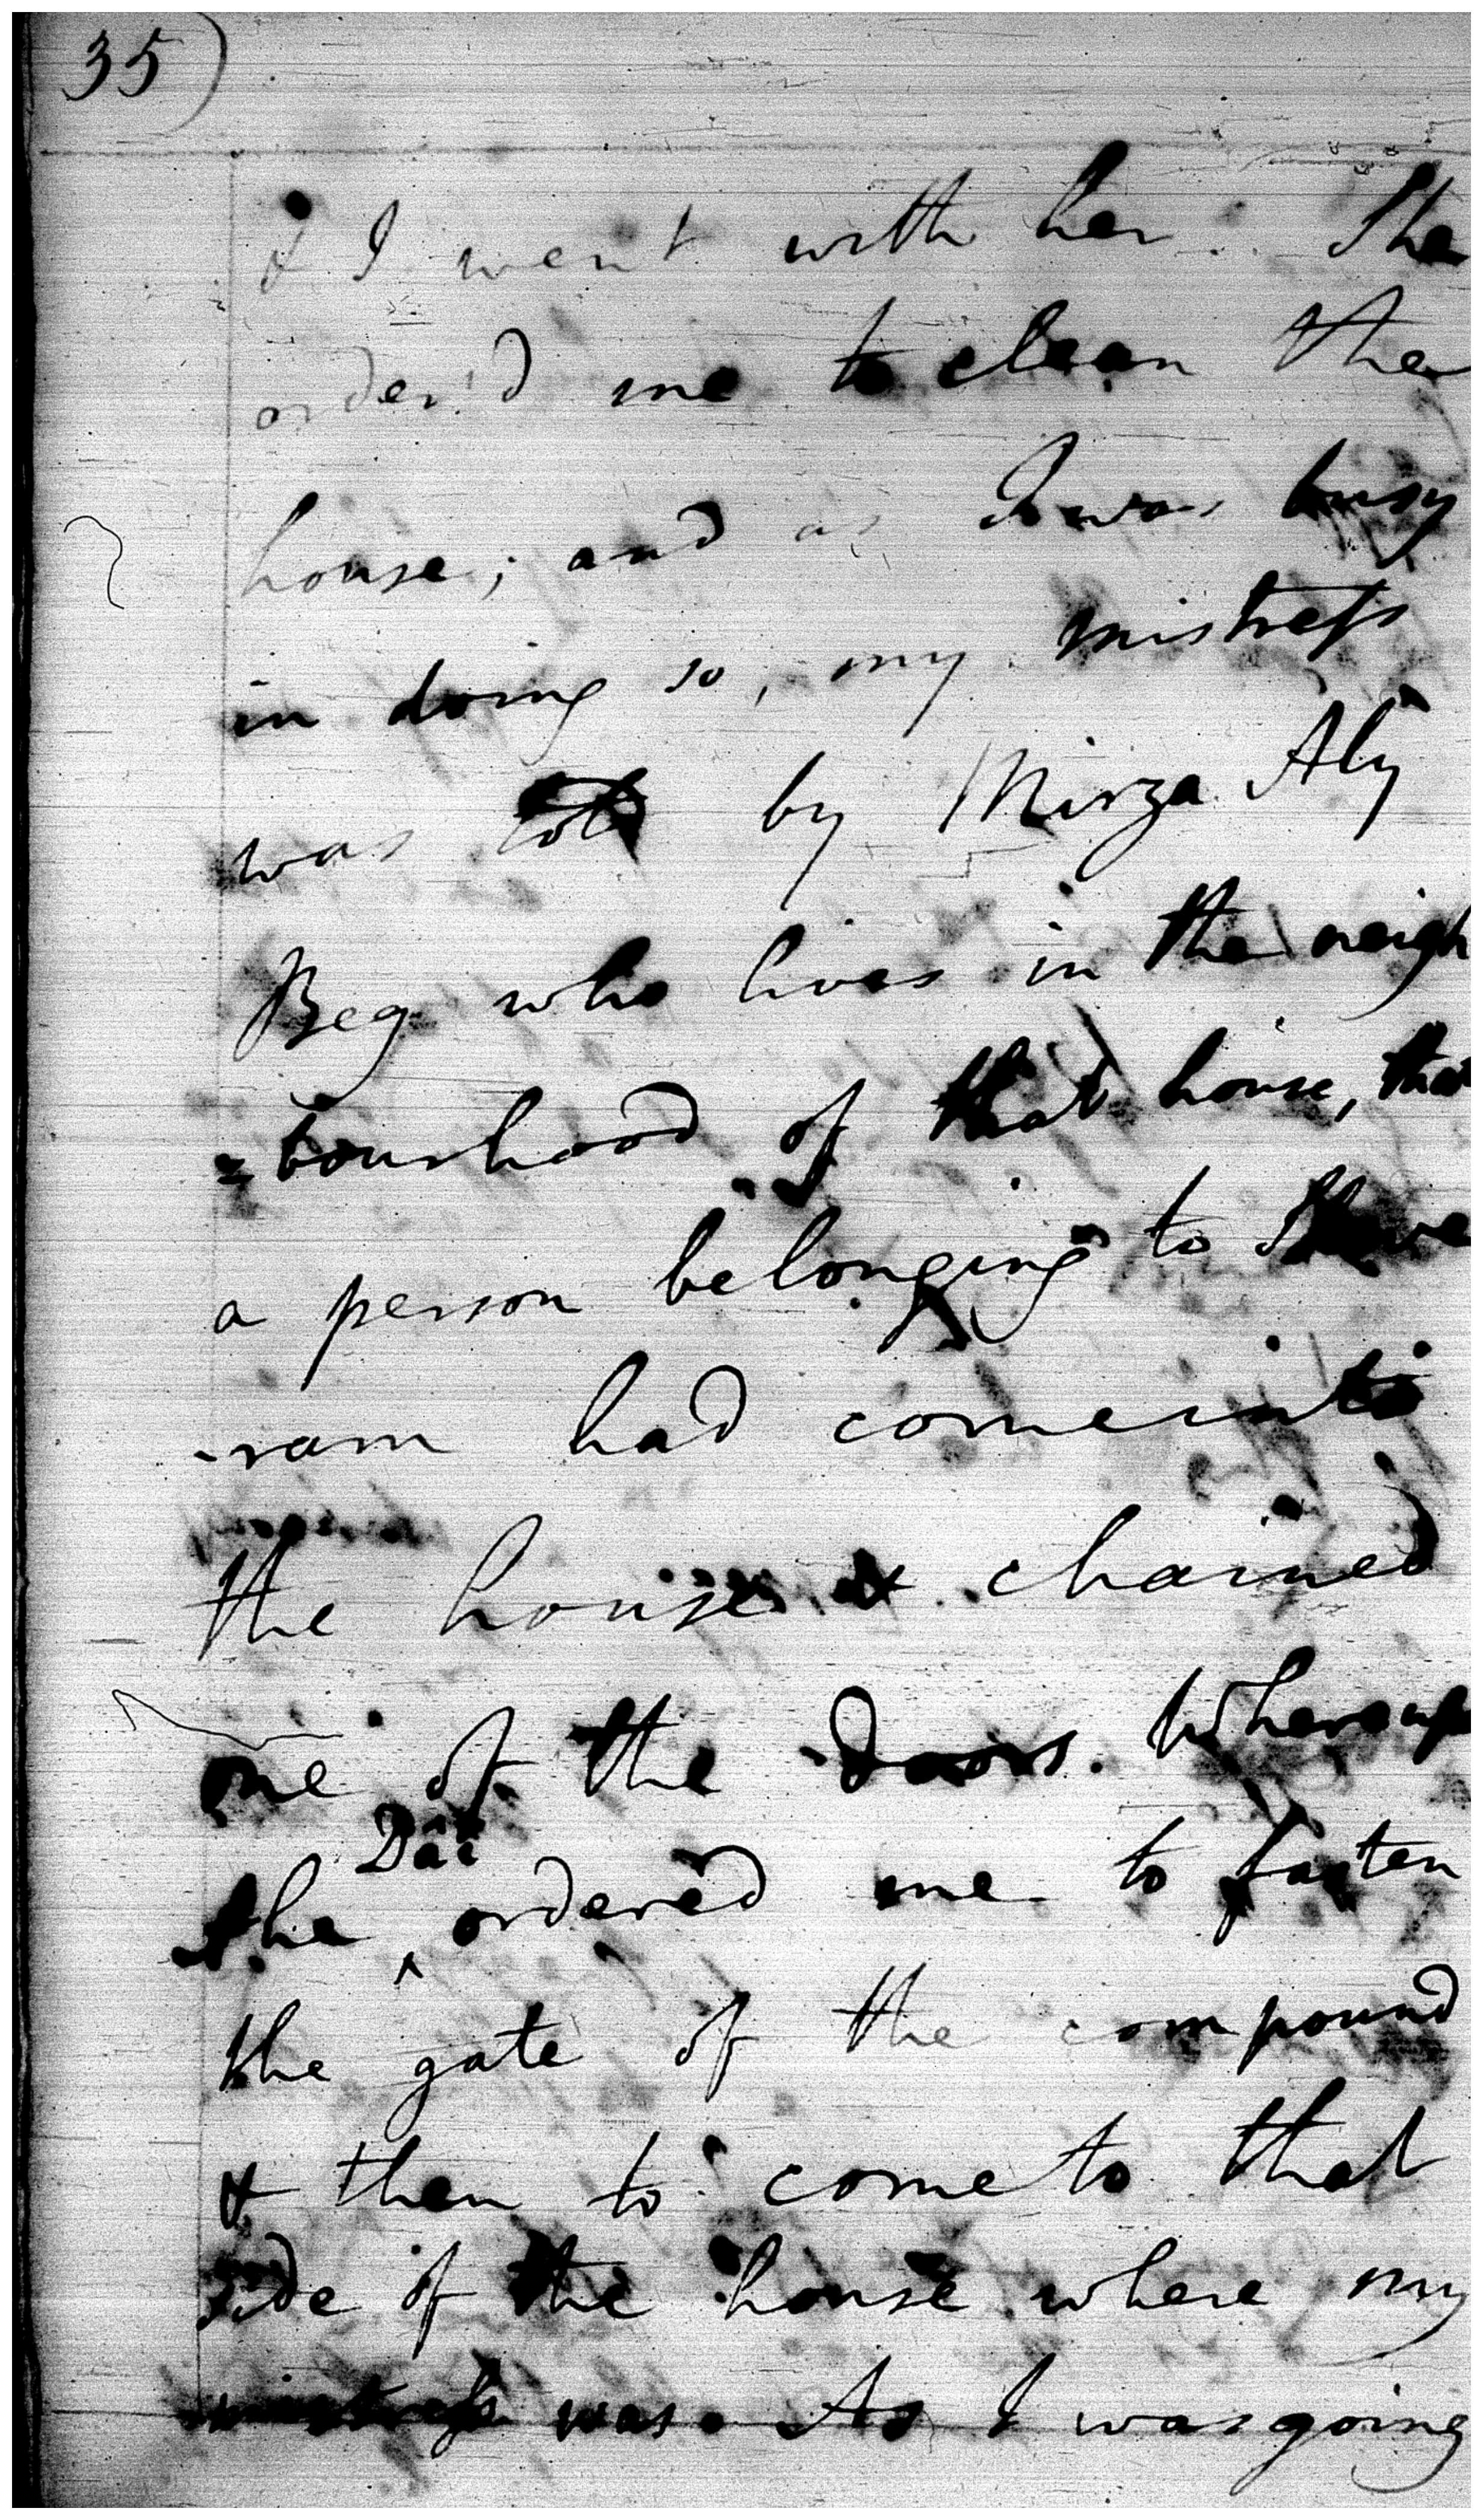 35)
& I went with her. She
order'd me to clean the
house; and as I was busy
in doing so, my mistress
was told by Mirza Aly
Beg who lives in the neigh
=bourhood of that house, that
a person belonging to
-ram had come into
the house & chained
one of the doors. Whereup
the Dâi ordered me to fasten
the gate of the compound
& then to come to that
side of the house where my
mistress was. As I was going